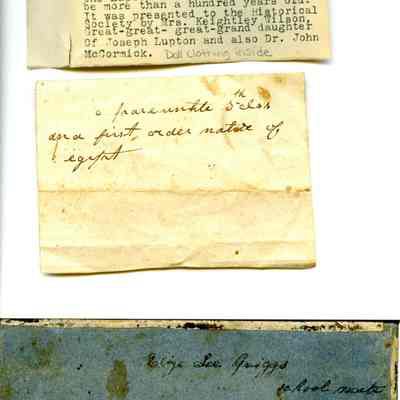 be more than a hundred years old.
It was presented to the Historical
Society by Mrs. Keightley Wilson,
Great-great- great-grand daughter
Of Joseph Lupton and also Dr. John
McCormick. Doll clothing inside
a 5th class
and first order native of
egypt
Eliza Lee Griggs
school mate